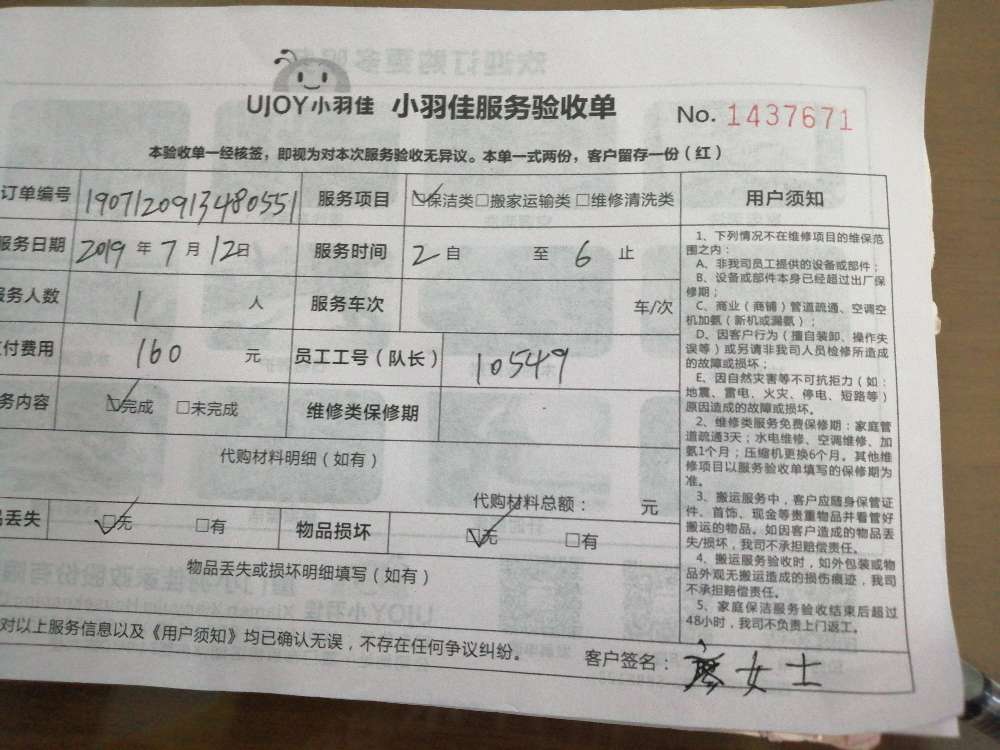 UJOY小羽佳 小羽佳服务验收单 No. 1437671
本验收单一经核签，即视为对本次服务验收无异议。本单一式两份，客户留存一份（红）
订单编号 1907120913480551 服务项目 ☑保洁类□搬家运输类□维修清洗类
服务日期 2019 年 7 月 12日 服务时间 2 自 至 6 止
务人数 1 人 服务车次 车/次
付费用 160 元 员工工号（队长） 10549
务内容 ☑完成 □未完成 维修类保修期
代购材料明细（如有）
代购材料总额： 元
丢失 ☑无 □有 物品损坏 ☑无 □有
物品丢失或损坏明细填写（如有）
对以上服务信息以及《用户须知》均已确认无误，不存在任何争议纠纷。
客户签名： 女士
用户须知
1、下列情况不在维修项目的维保范
围之内：
A、非我司员工提供的设备或部件；
B、设备或部件本身已经超过出厂保
修期；
C、商业（商铺）管道疏通、空调空
机加氨（新机或漏氨）；
D、因客户行为（擅自装卸、操作失
误等）或另请非我司人员检修所造成
的故障或损坏；
E、因自然灾害等不可抗拒力（如：
地震、雷电、火灾、停电、短路等）
原因造成的故障或损坏。
2、维修类服务免费保修期：家庭管
道疏通3天；水电维修、空调维修、加
氨1个月；压缩机更换6个月。其他维
修项目以服务验收单填写的保修期为
准。
3、搬运服务中，客户应随身保管证
件、首饰、现金等贵重物品并看管好
搬运的物品。如因客户造成的物品丢
失/损坏，我司不承担赔偿责任。
4、搬运服务验收时，如外包装或物
品外观无搬运造成的损伤痕迹，我司
不承担赔偿责任。
5、家庭保洁服务验收结束后超过
48小时，我司不负责上门返工。